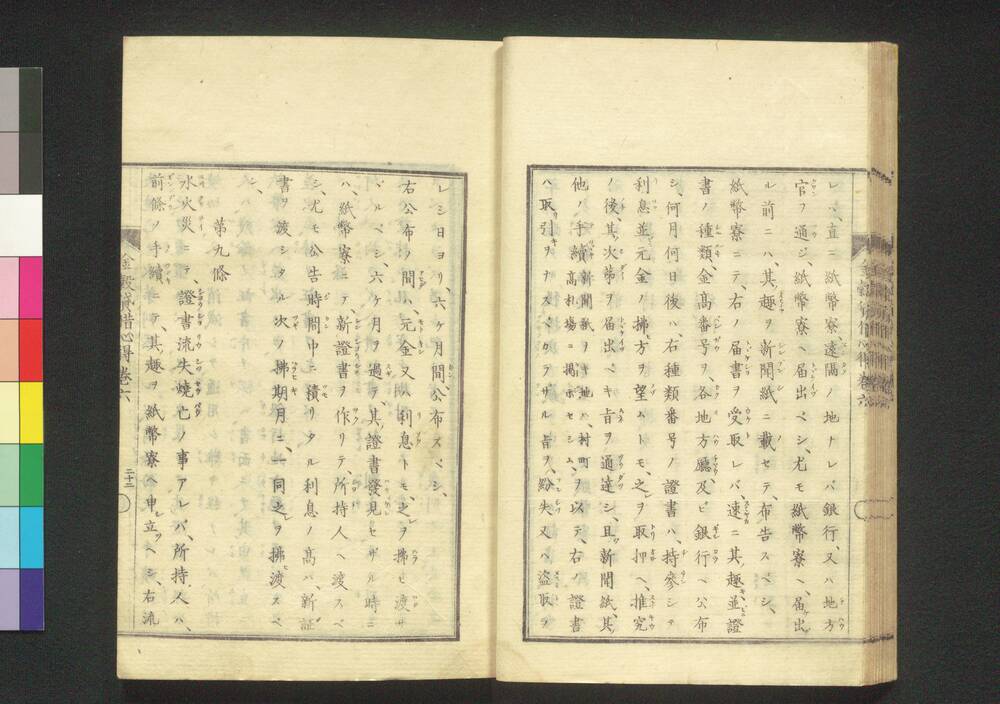 レバ、直ニ紙幣寮遠隔ノ地ナレバ銀行、又ハ地方
官ヲ通ジ、紙幣寮ヘ届出ベシ、尤モ紙幣寮ヘ、届出
ル前ニハ、其趣ヲ新聞紙ニ載セテ、布告スベシ、
紙幣寮ニテ、右ノ届書ヲ受取レバ、速ニ其趣並證
書ノ種類、金髙番号ヲ、各地方廳及ビ銀行ヘ公布
シ、何月何日後ハ右種類番号ノ證書ハ、持參シテ
利息並元金ノ拂方ヲ望ムトモ、之ヲ取押ヘ、推究
ノ後、其次第ヲ届出ベキ旨ヲ通達シ、且新聞紙、其
他ノ手續新聞紙ナキ地ハ、村町髙札場ニ掲示セシム、ヲ以テ、右ノ證書
ハ取引ヲナスベカラザル旨ヲ、紛失、又ハ盗取ラ
レシ日ヨリ、六ヶ月間、公布スベシ、
右公布ノ間、元金又ハ利息トモ、之ヲ拂ヒ渡サ
ザルベシ、六ヶ月ヲ過テ、其證書發見セザル時ニ
ハ、紙幣寮ニテ、新證書ヲ作リテ、所持人ヘ渡スベ
シ、尤モ公告時間中ニ積リタル利息ノ髙ハ、新証
書ヲ渡シタル、次ノ拂期月ニ、一同之ヲ拂渡スベ
シ、
第九條
水火災ニテ、證書流失燒亡ノ事アレバ、所持人ハ、
前條ノ手續ニテ、其趣ヲ紙幣寮ヘ申立ベシ、右流
貸借心得卷六
二十二